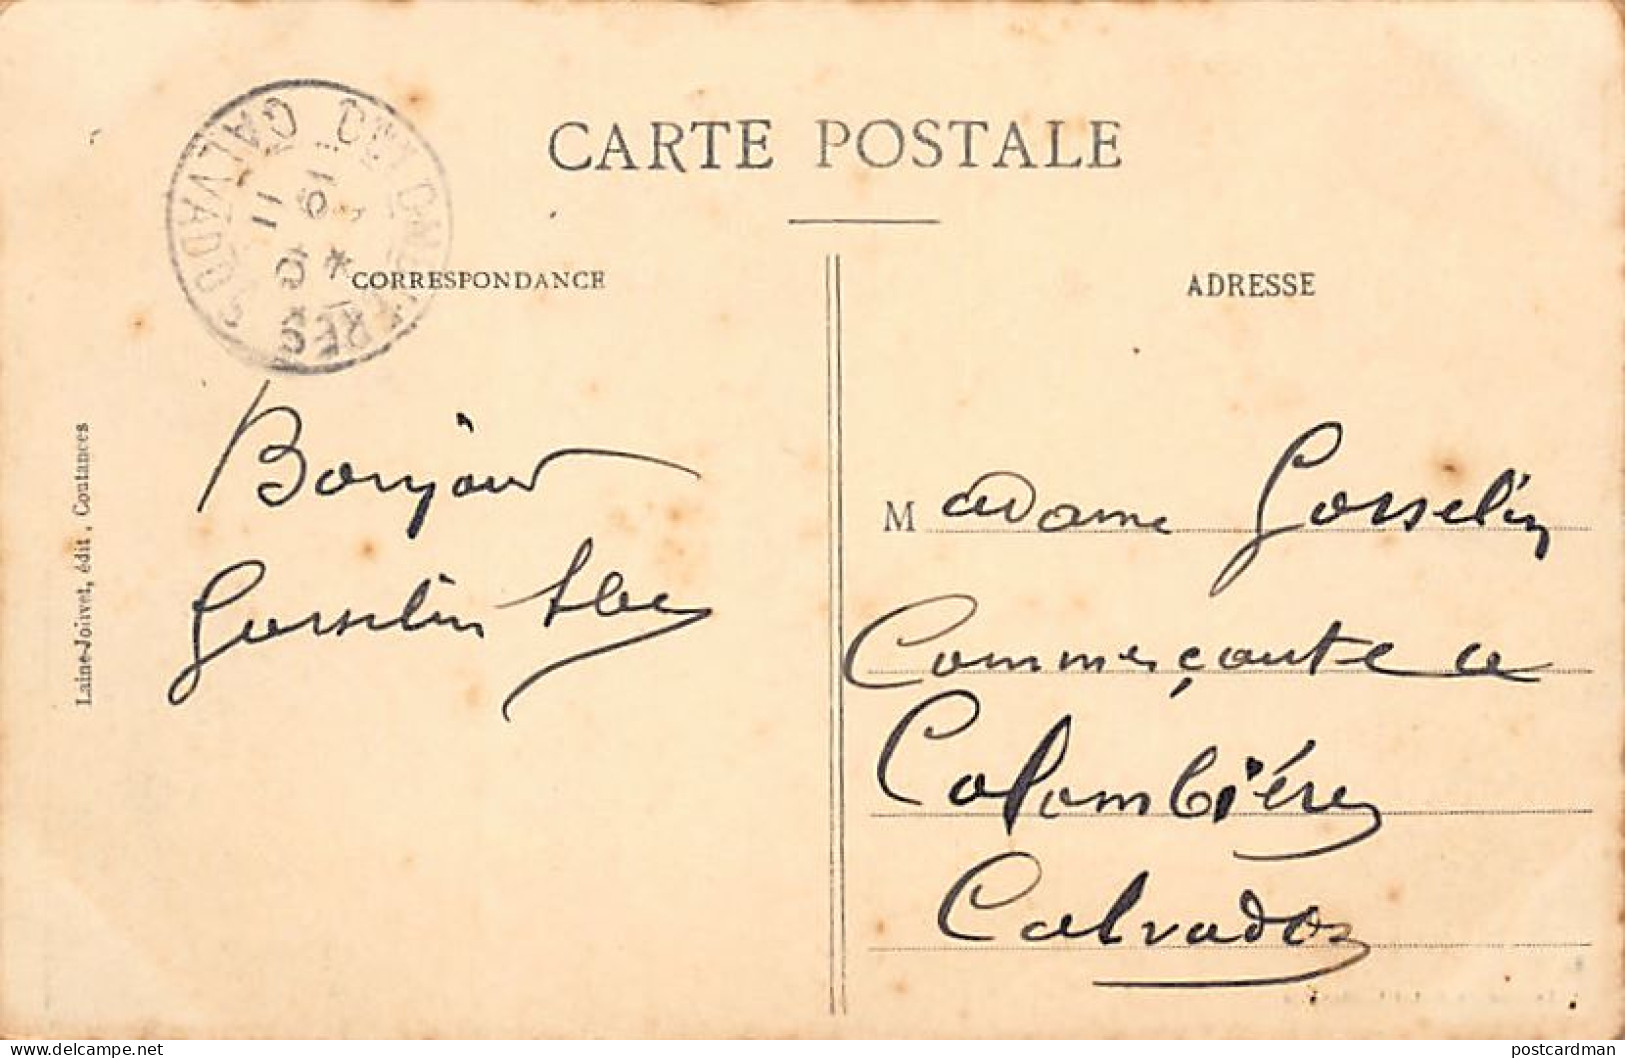 CARTE POSTALE
CORRESPONDANCE
ADRESSE
CALVADOS
Laine-Joirvet, édit, Coutances
Bonjour
Gosselin
Madame Gosselin
Commerçante a
Colombières
Calvados
www.delcampe.net
postcardman